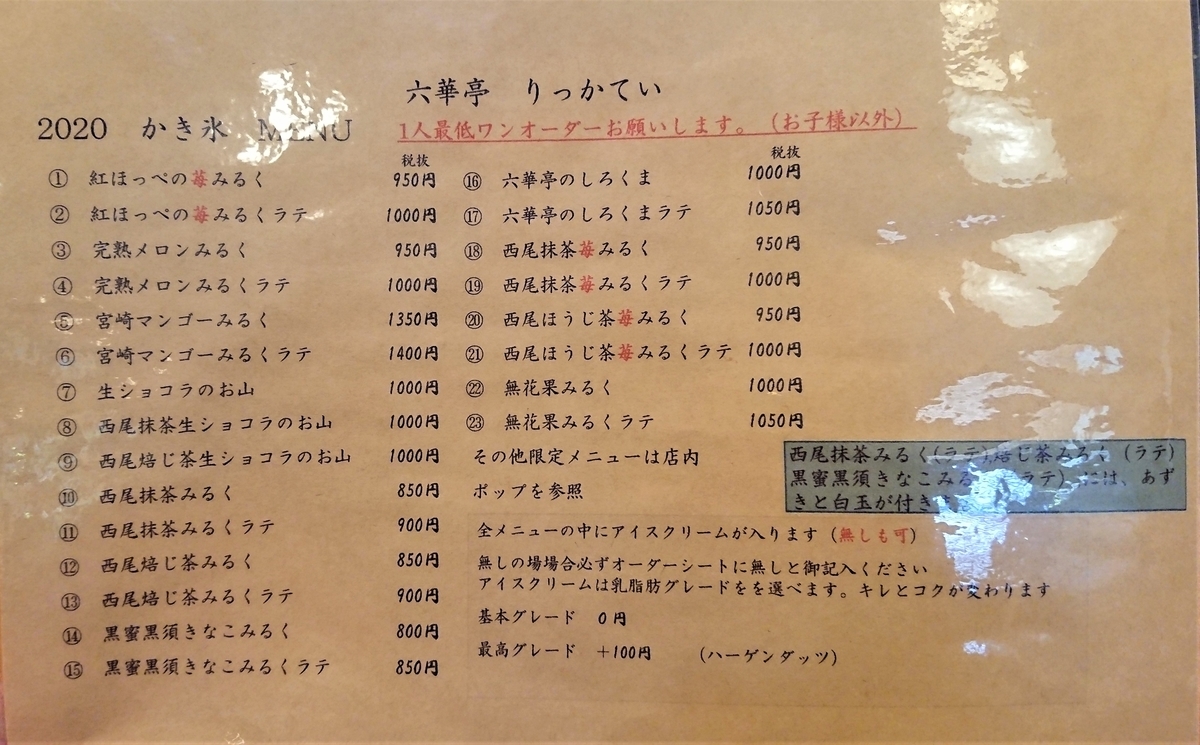 六華亭 りっかてい
2020 かき氷 MENU
1人最低ワンオーダーお願いします。(お子様以外)
税抜
① 紅ほっぺの苺みるく 950円
② 紅ほっぺの苺みるくラテ 1000円
③ 完熟メロンみるく 950円
④ 完熟メロンみるくラテ 1000円
⑤ 宮崎マンゴーみるく 1350円
⑥ 宮崎マンゴーみるくラテ 1400円
⑦ 生ショコラのお山 1000円
⑧ 西尾抹茶生ショコラのお山 1000円
⑨ 西尾焙じ茶生ショコラのお山 1000円
⑩ 西尾抹茶みるく 850円
⑪ 西尾抹茶みるくラテ 900円
⑫ 西尾焙じ茶みるく 850円
⑬ 西尾焙じ茶みるくラテ 900円
⑭ 黒蜜黒須きなこみるく 800円
⑮ 黒蜜黒須きなこみるくラテ 850円
税抜
⑯ 六華亭のしろくま 1000円
⑰ 六華亭のしろくまラテ 1050円
⑱ 西尾抹茶苺みるく 950円
⑲ 西尾抹茶苺みるくラテ 1000円
⑳ 西尾ほうじ茶苺みるく 950円
㉑ 西尾ほうじ茶苺みるくラテ 1000円
㉒ 無花果みるく 1000円
㉓ 無花果みるくラテ 1050円
その他限定メニューは店内
ポップを参照
西尾抹茶みるく(ラテ)焙じ茶みるく(ラテ)
黒蜜黒須きなこみる ラテ) には、あず
きと白玉が付き
全メニューの中にアイスクリームが入ります(無しも可)
無しの場場合必ずオーダーシートに無しと御記入ください
アイスクリームは乳脂肪グレードをを選べます。キレとコクが変わります
基本グレード 0円
最高グレード +100円 (ハーゲンダッツ)